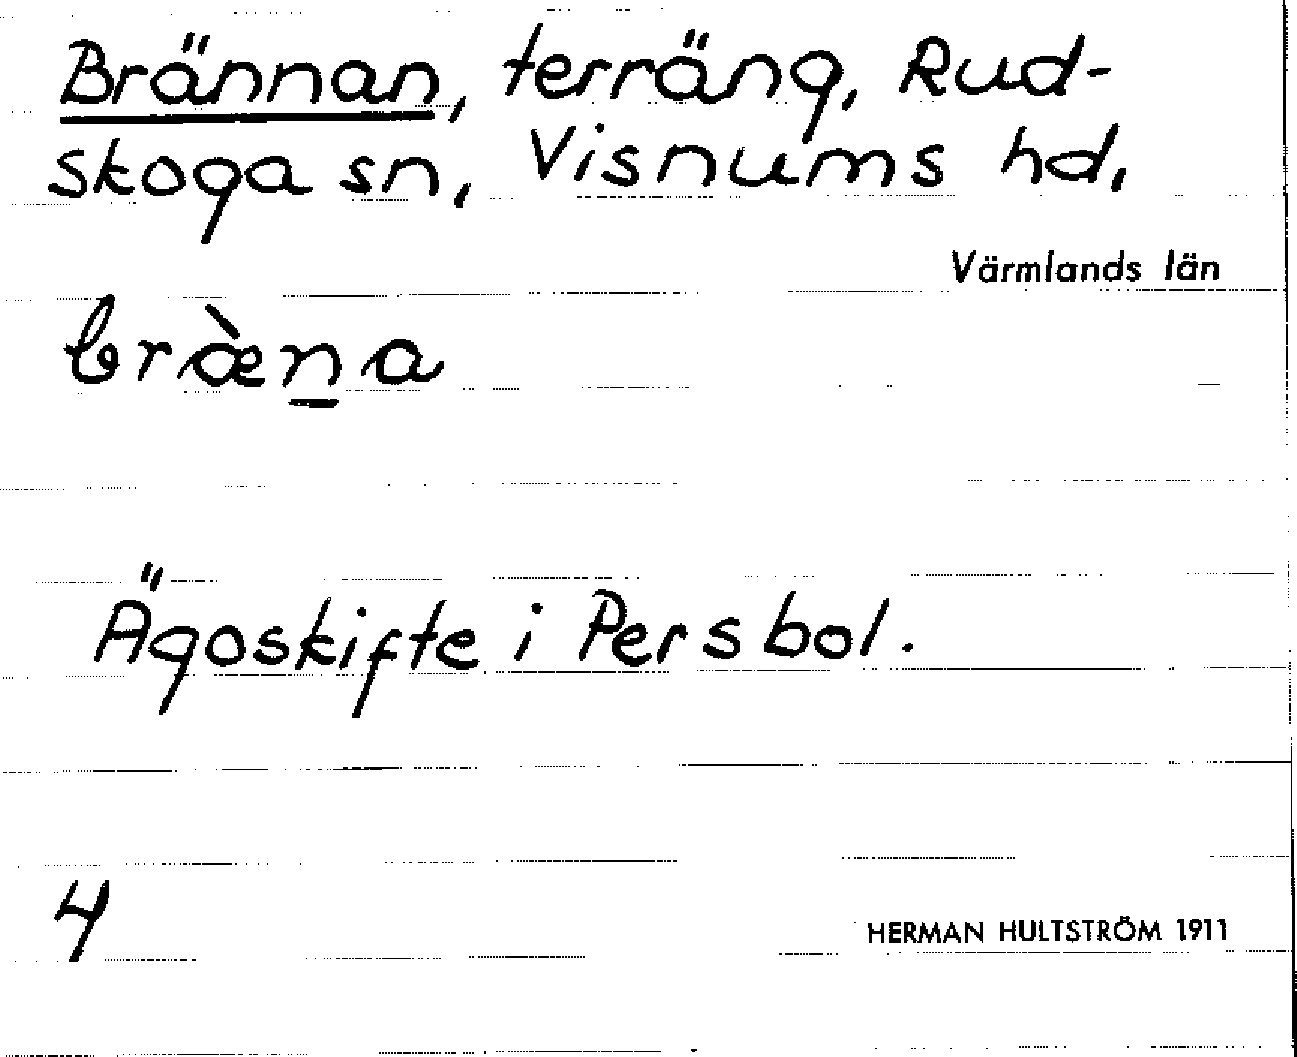 Brännan, terräng, Rud-
skoga sn, Visnums hd,
Värmlands län
bræ̀n̲a
Ägoskifte i Persbol.
4
HERMAN HULTSTRÖM 1911